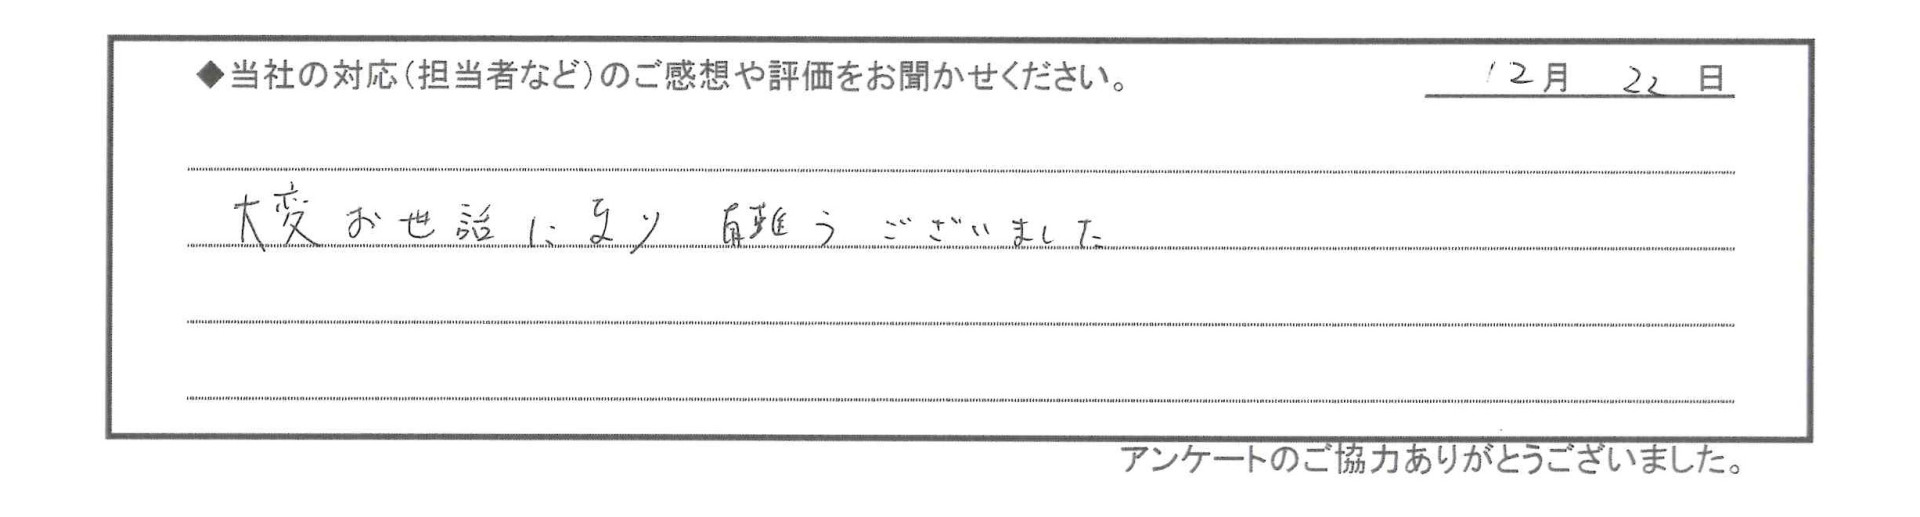 ◆当社の対応(担当者など)のご感想や評価をお聞かせください。 12月 22日
大変お世話になり 有難うございました
アンケートのご協力ありがとうございました。